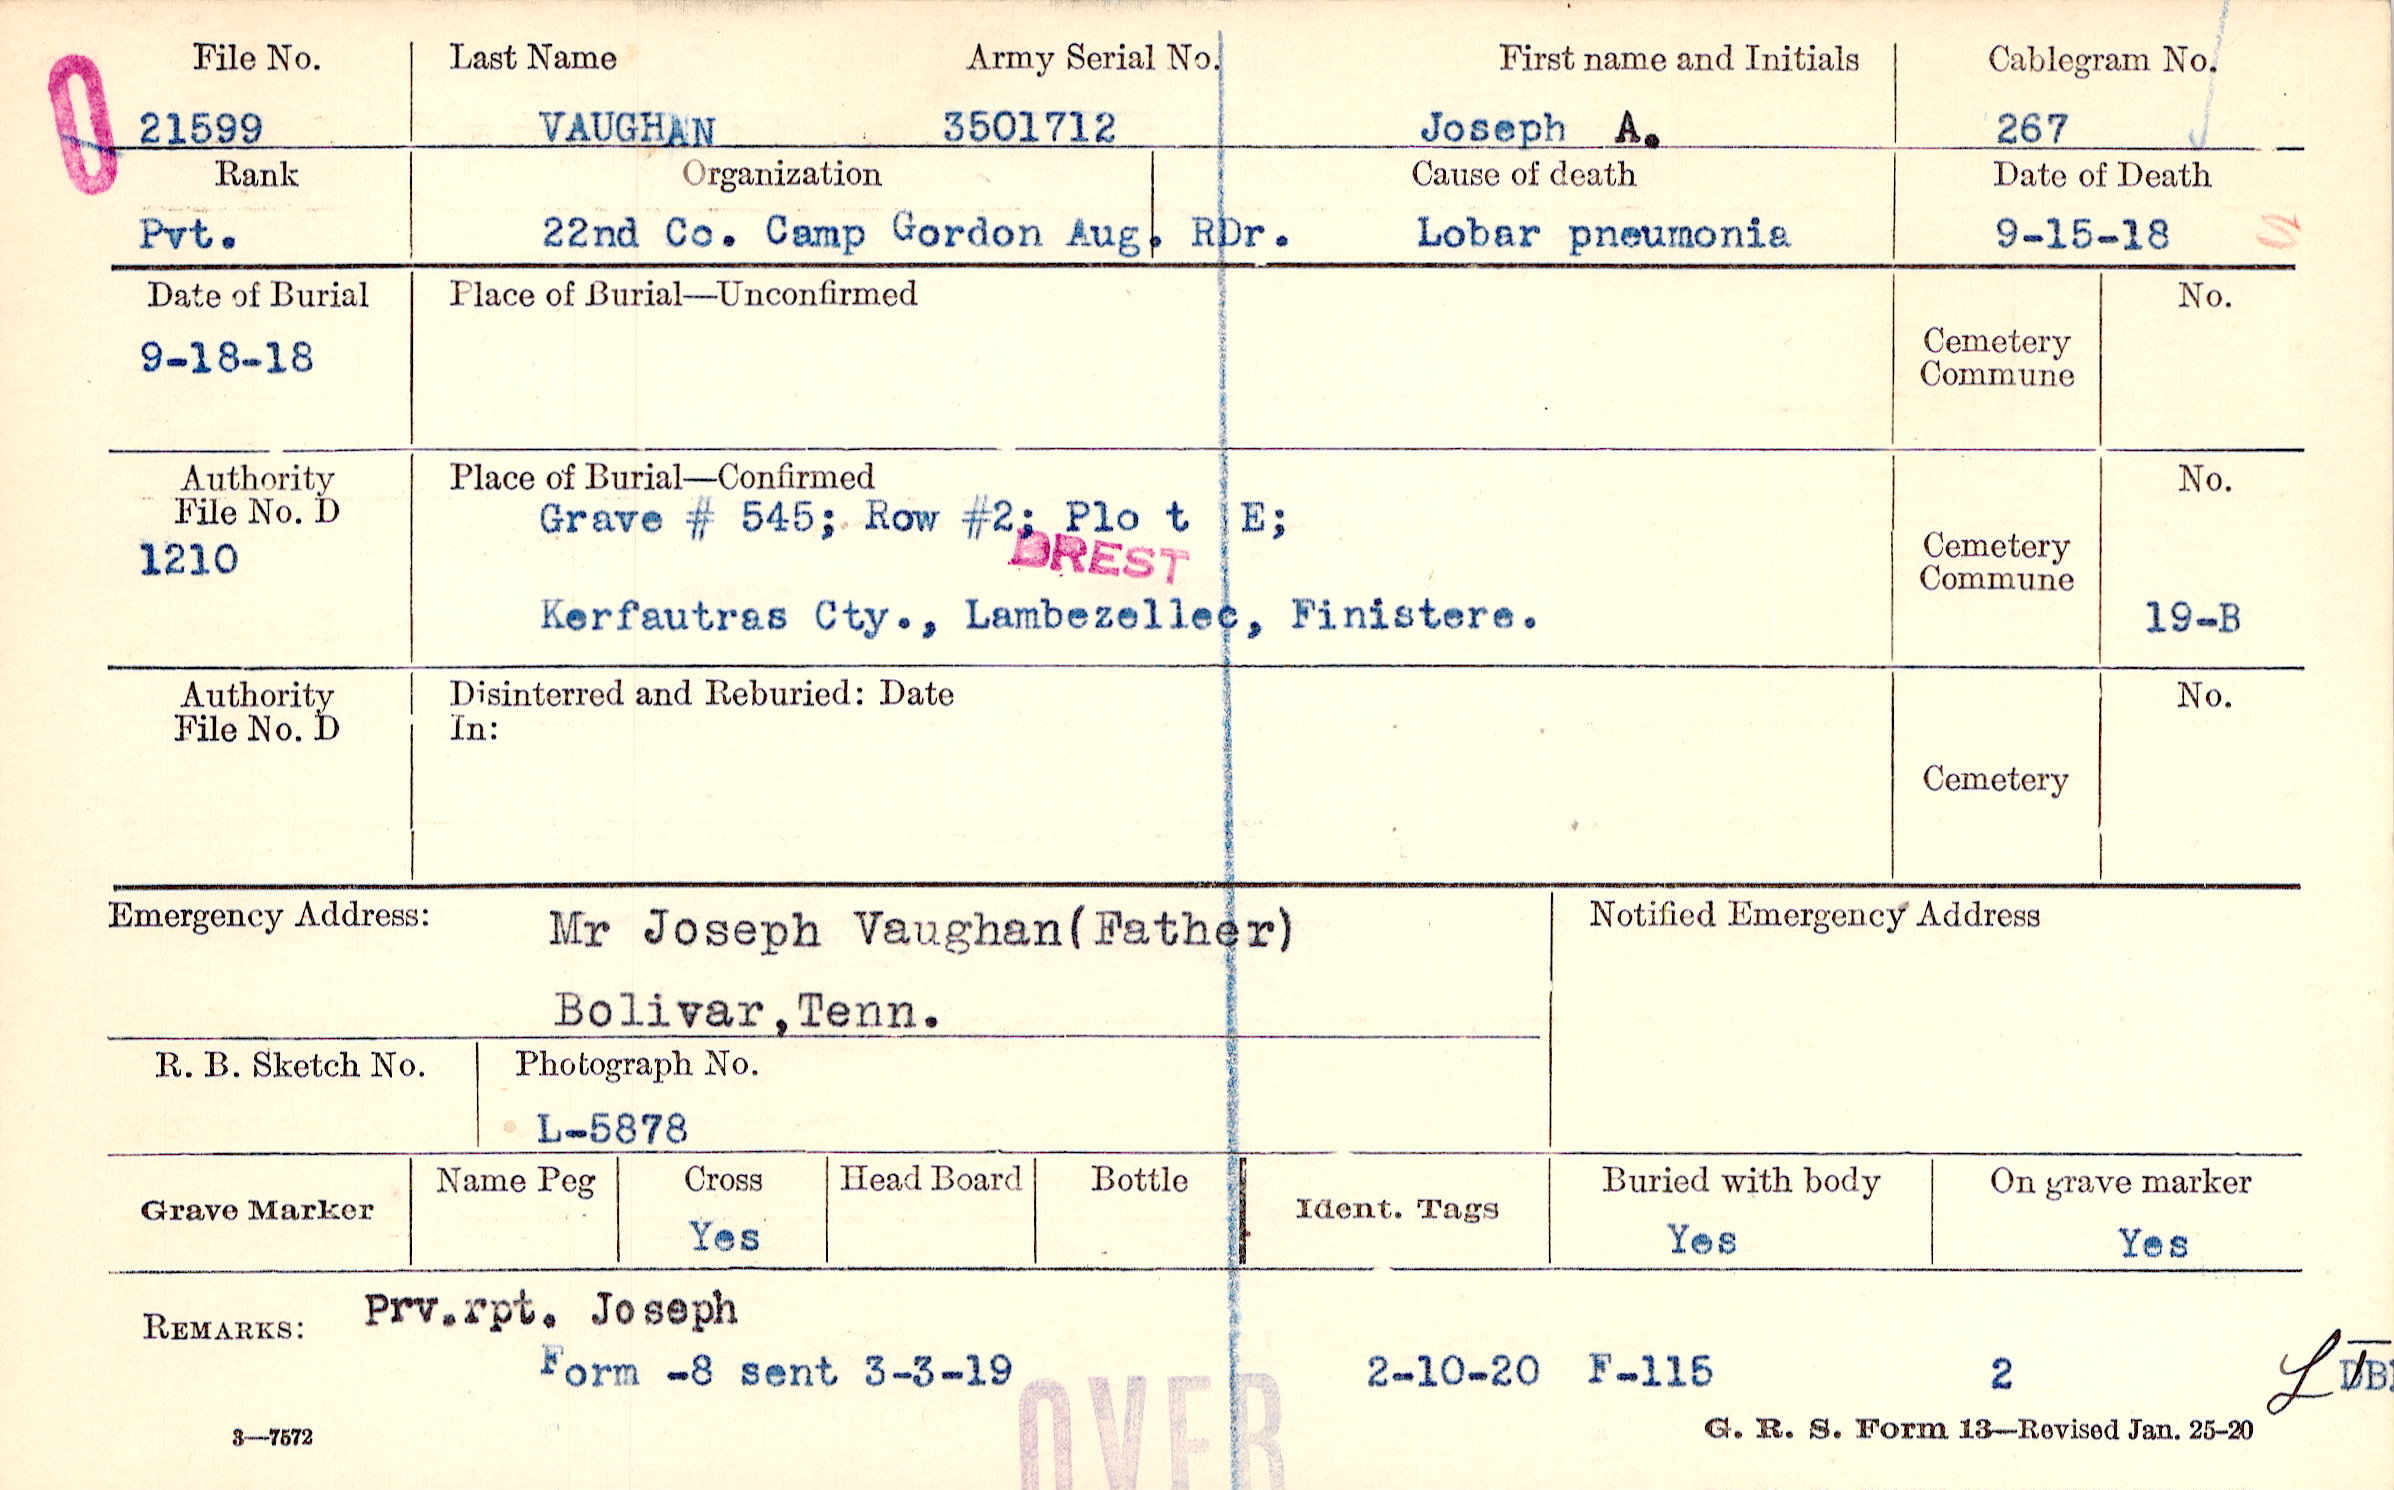 File No. Last Name Army Serial No. First name and Initials Cablegram No.
21599 VAUGHAN 3501712 Joseph A. 267
Rank Organization Cause of death Date of Death
Pvt. 22nd Co. Camp Gordon Aug. RDr. Lobar pneumonia 9-15-18
Date of Burial Place of Burial—Unconfirmed No.
9-18-18
Cemetery
Commune
Authority Place of Burial—Confirmed No.
File No. D
Grave # 545; Row #2; Plo t E;
BREST
1210
Cemetery
Commune
Kerfautras Cty., Lambezellec, Finistere. 19-B
Authority Disinterred and Reburied: Date No.
File No. D In:
Cemetery
Emergency Address: Mr Joseph Vaughan(Father) Notified Emergency Address
Bolivar,Tenn.
R. B. Sketch No. Photograph No.
L-5878
Grave Marker Name Peg Cross Head Board Bottle Ident. Tags Buried with body On grave marker
Yes Yes Yes
REMARKS: Prv.rpt. Joseph
Form -8 sent 3-3-19 2-10-20 F-115 2
3—7572 OVER G. R. S. Form 13—Revised Jan. 25-20